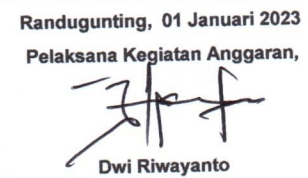 Randugunting, 01 Januari 2023
Pelaksana Kegiatan Anggaran,
Dwi Riwayanto